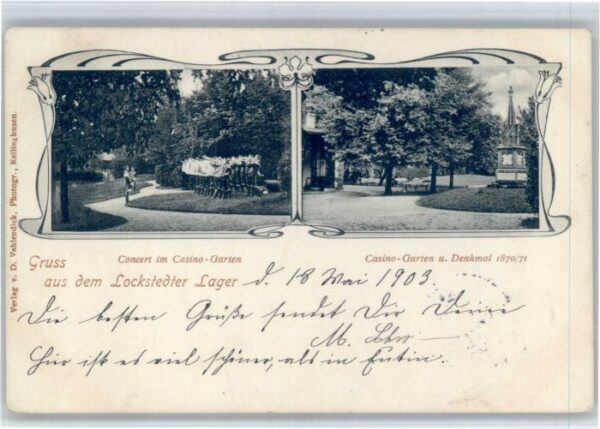 Verlag v. D. Vahlendick, Photogr., Kellinghusen.
Concert im Casino-Garten
Casino-Garten u. Denkmal 1870/71
Gruss
aus dem Lockstedter Lager d. 18 Mai 1903
Die besten Grüße sendet Dir Deine
M.
Hier ist es viel schöner, als in Eutin.